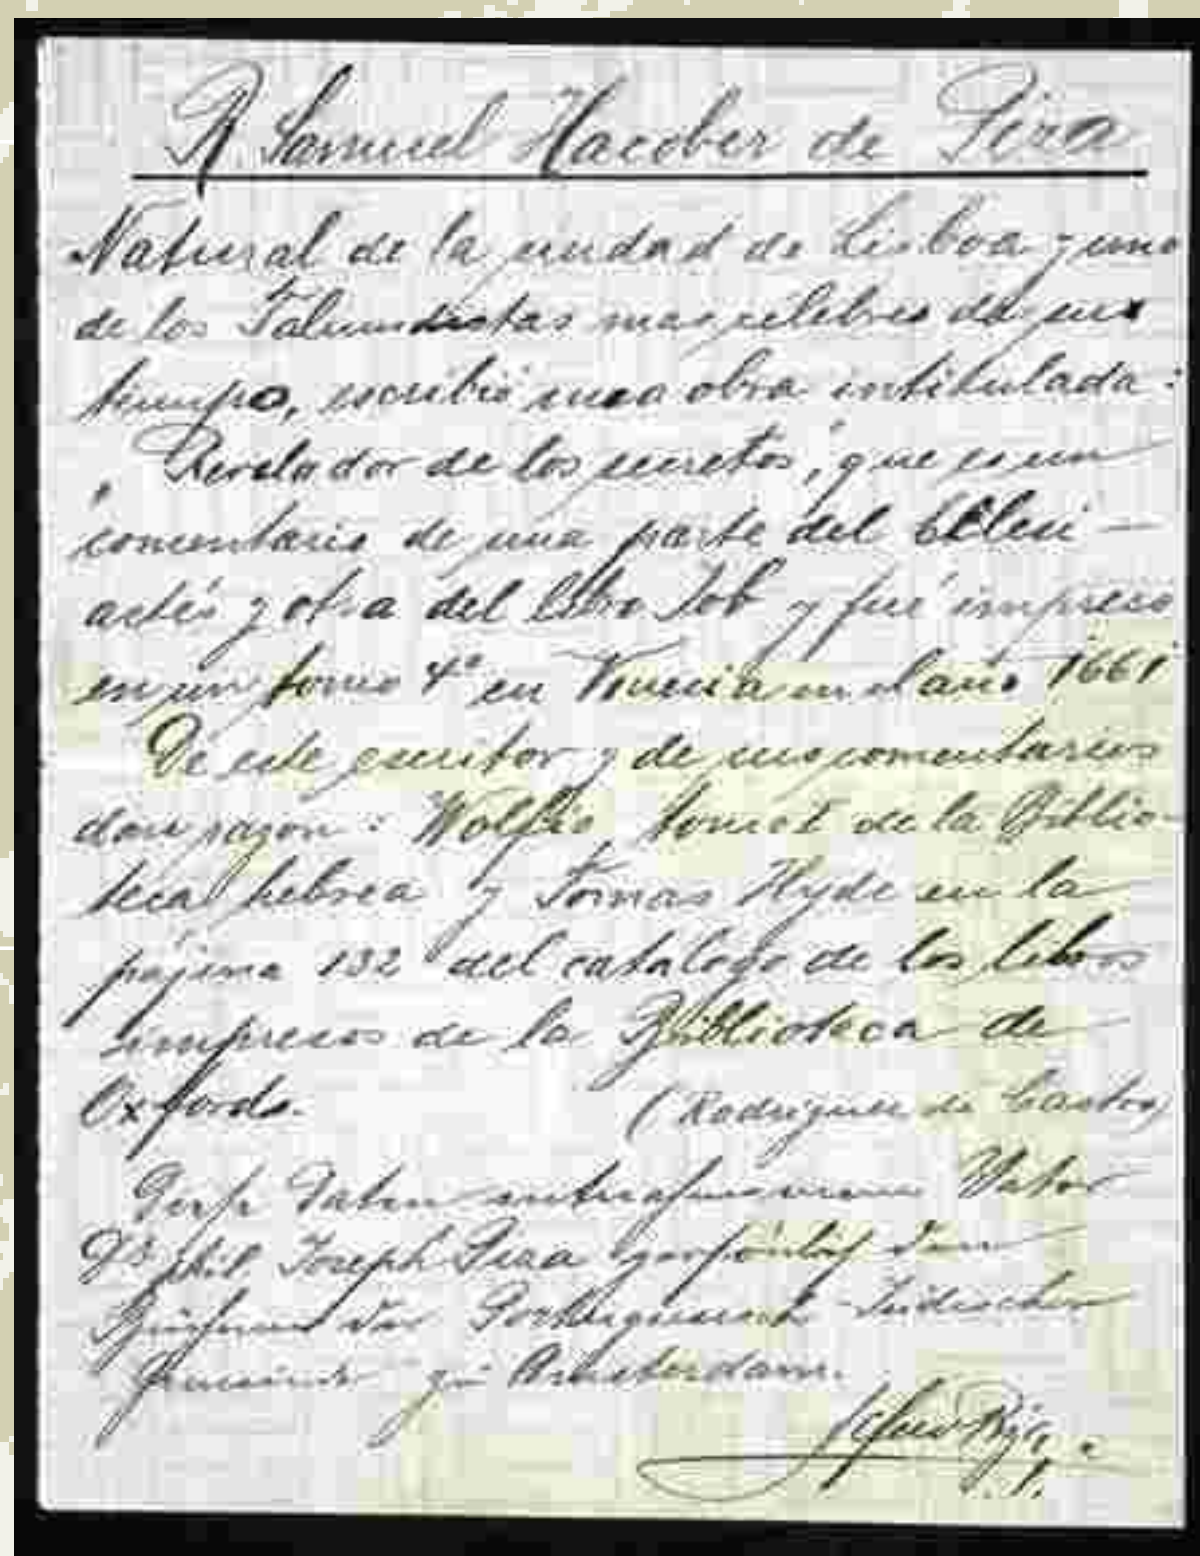 R Samuel Hacober de Piza
Natural de la ciudad de Lisboa y uno
de los Talumdistas mas celebres de sus
tiempo, escribió una obra intitulada:
"Revelador de los secretos", que es un
comentario de una parte del Eclesi-
astés y otra del libro Job y fué impreso
en un tomo 4º en Venecia en el año 1661
De este escritor y de sus comentarios
dan razon: Wolfio tomo I de la Biblio-
teca hebrea y Tomas Hyde en la
pájina 132 del catálogo de los libros
impresos de la Biblioteca de
Oxfords. (Rodriguez de Castro)
Daten Vater
Dr phil. Joseph Piza den
der Portugiesisch Jüdischen
Gemeinde zu Amsterdam.